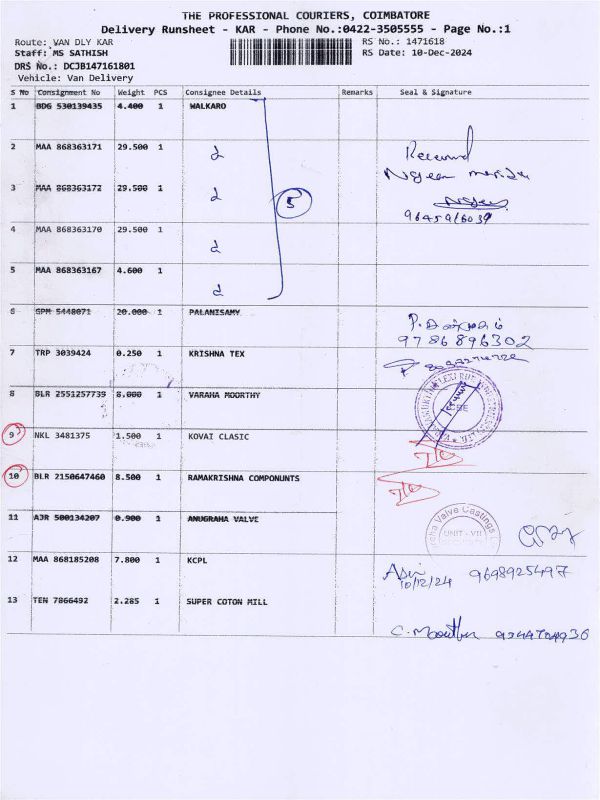 THE PROFESSIONAL COURIERS, COIMBATORE
Delivery Runsheet - KAR - Phone No.:0422-3505555 - Page No.:1
Route: VAN DLY KAR RS No.: 1471618
Staff: MS SATHISH RS Date: 10-Dec-2024
DRS No.: DCJB147161801
Vehicle: Van Delivery
S No Consignment No Weight PCS Consignee Details Remarks Seal & Signature
1 BDG 530139435 4.400 1 WALKARO
2 MAA 868363171 29.500 1 Received
3 MAA 868363172 29.500 1 5
9645916039
4 MAA 868363170 29.500 1
5 MAA 868363167 4.600 1
6 GPM 5448071 20.000 1 PALANISAMY
9786896302
7 TRP 3039424 0.250 1 KRISHNA TEX
8 BLR 2551257739 8.000 1 VARAHA MOORTHY
9 NKL 3481375 1.500 1 KOVAI CLASIC
10 BLR 2150647460 8.500 1 RAMAKRISHNA COMPONUNTS
11 AJR 500134207 0.900 1 ANUGRAHA VALVE
Valve Castings
UNIT - VII
12 MAA 868185208 7.800 1 KCPL
10/12/24 9698925497
13 TEN 7866492 2.285 1 SUPER COTON MILL